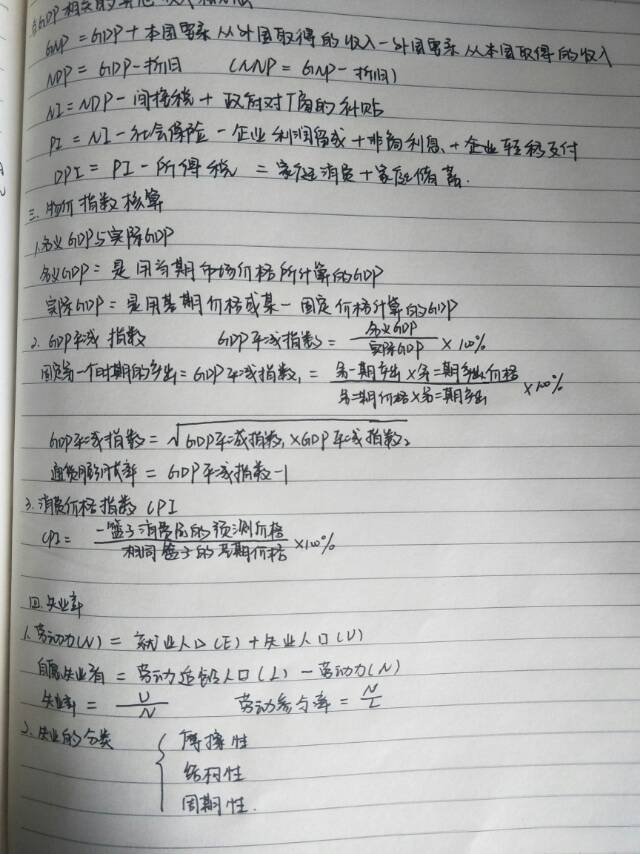 GDP相关的其他
GNP = GDP + 本国要素从外国取得的收入 - 外国要素从本国取得的收入
NDP = GDP - 折旧 (NNP = GNP - 折旧)
NI = NDP - 间接税 + 政府对厂商的补贴
PI = NI - 社会保险 - 企业利润留成 + 非商利息 + 企业转移支付
DPI = PI - 所得税 = 家庭消费 + 家庭储蓄.
三. 物价指数核算
1. 名义GDP与实际GDP
名义GDP = 是用当期市场价格所计算的GDP
实际GDP = 是用基期价格或某一固定价格计算的GDP
2. GDP平减指数 GDP平减指数 = 名义GDP / 实际GDP × 100%
固定第一个时期的产出 = GDP平减指数₁ = 第一期产出 × 第二期产出价格 / 第一期价格 × 第一期产出 × 100%
GDP平减指数 = √GDP平减指数₁ × GDP平减指数₂
通货膨胀率 = GDP平减指数 - 1
3. 消费价格指数 CPI
CPI = 一篮子消费品的预测价格 / 相同篮子的基期价格 × 100%
四. 失业率
1. 劳动力(N) = 就业人口(E) + 失业人口(U)
自愿失业者 = 劳动适龄人口(L) - 劳动力(N)
失业率 = U / N 劳动参与率 = N / L
2. 失业的分类 { 摩擦性
结构性
周期性.